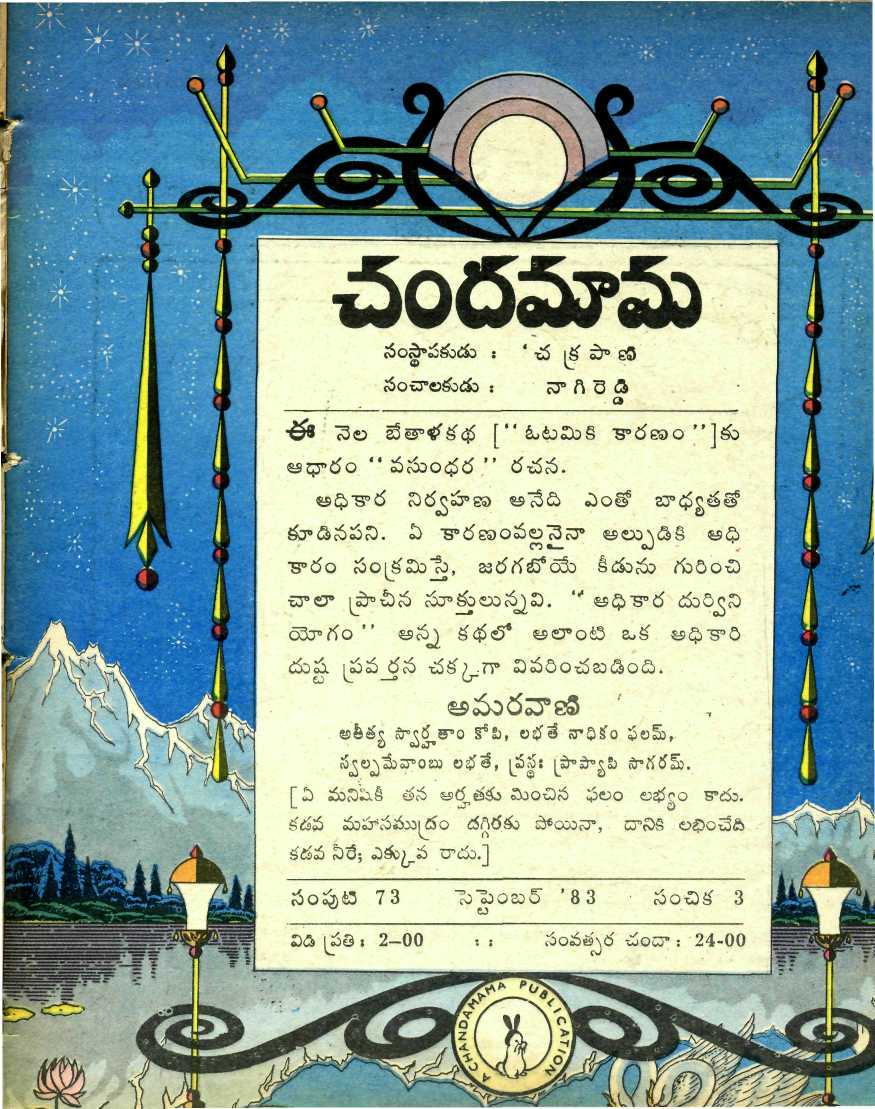 చందమామ
సంస్థాపకుడు : ‘చక్రపాణి
సంచాలకుడు : నాగిరెడ్డి
ఈ నెల బేతాళకథ [‘‘ఓటమికి కారణం’’]కు
ఆధారం ‘‘వసుంధర’’ రచన.
అధికార నిర్వహణ అనేది ఎంతో బాధ్యతతో
కూడినపని. ఏ కారణంవల్లనైనా అల్పుడికి అధి
కారం సంక్రమిస్తే, జరగబోయే కీడును గురించి
చాలా ప్రాచీన సూక్తులున్నవి. ‘‘అధికార దుర్విని
యోగం’’ అన్న కథలో అలాంటి ఒక అధికారి
దుష్ట ప్రవర్తన చక్కగా వివరించబడింది.
అమరవాణి
అతీత్య స్వార్హతాం కోపి, లభతే నాధికం ఫలమ్,
స్వల్పమేవాంబు లభతే, ప్రస్థః ప్రాప్యాపి సాగరమ్.
[ఏ మనిషికీ తన అర్హతకు మించిన ఫలం లభ్యం కాదు.
కడవ మహాసముద్రం దగ్గిరకు పోయినా, దానికి లభించేది
కడవ నీరే; ఎక్కువ రాదు.]
సంపుటి 73 సెప్టెంబర్ '83 సంచిక 3
విడి ప్రతి : 2–00 : : సంవత్సర చందా : 24-00
A CHANDAMAMA PUBLICATION